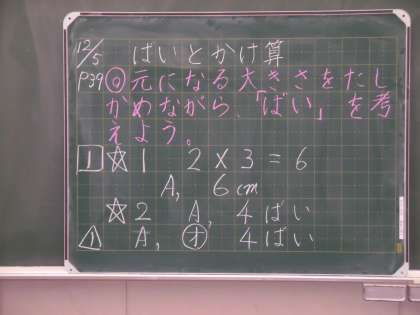 12/5 ばいとかけ算
P39 ◎ 元になる大きさをたし
かめながら、「ばい」を考
えよう。
1 ☆1 2×3=6
A, 6cm
☆2 A, 4ばい
△1 A, オ 4ばい